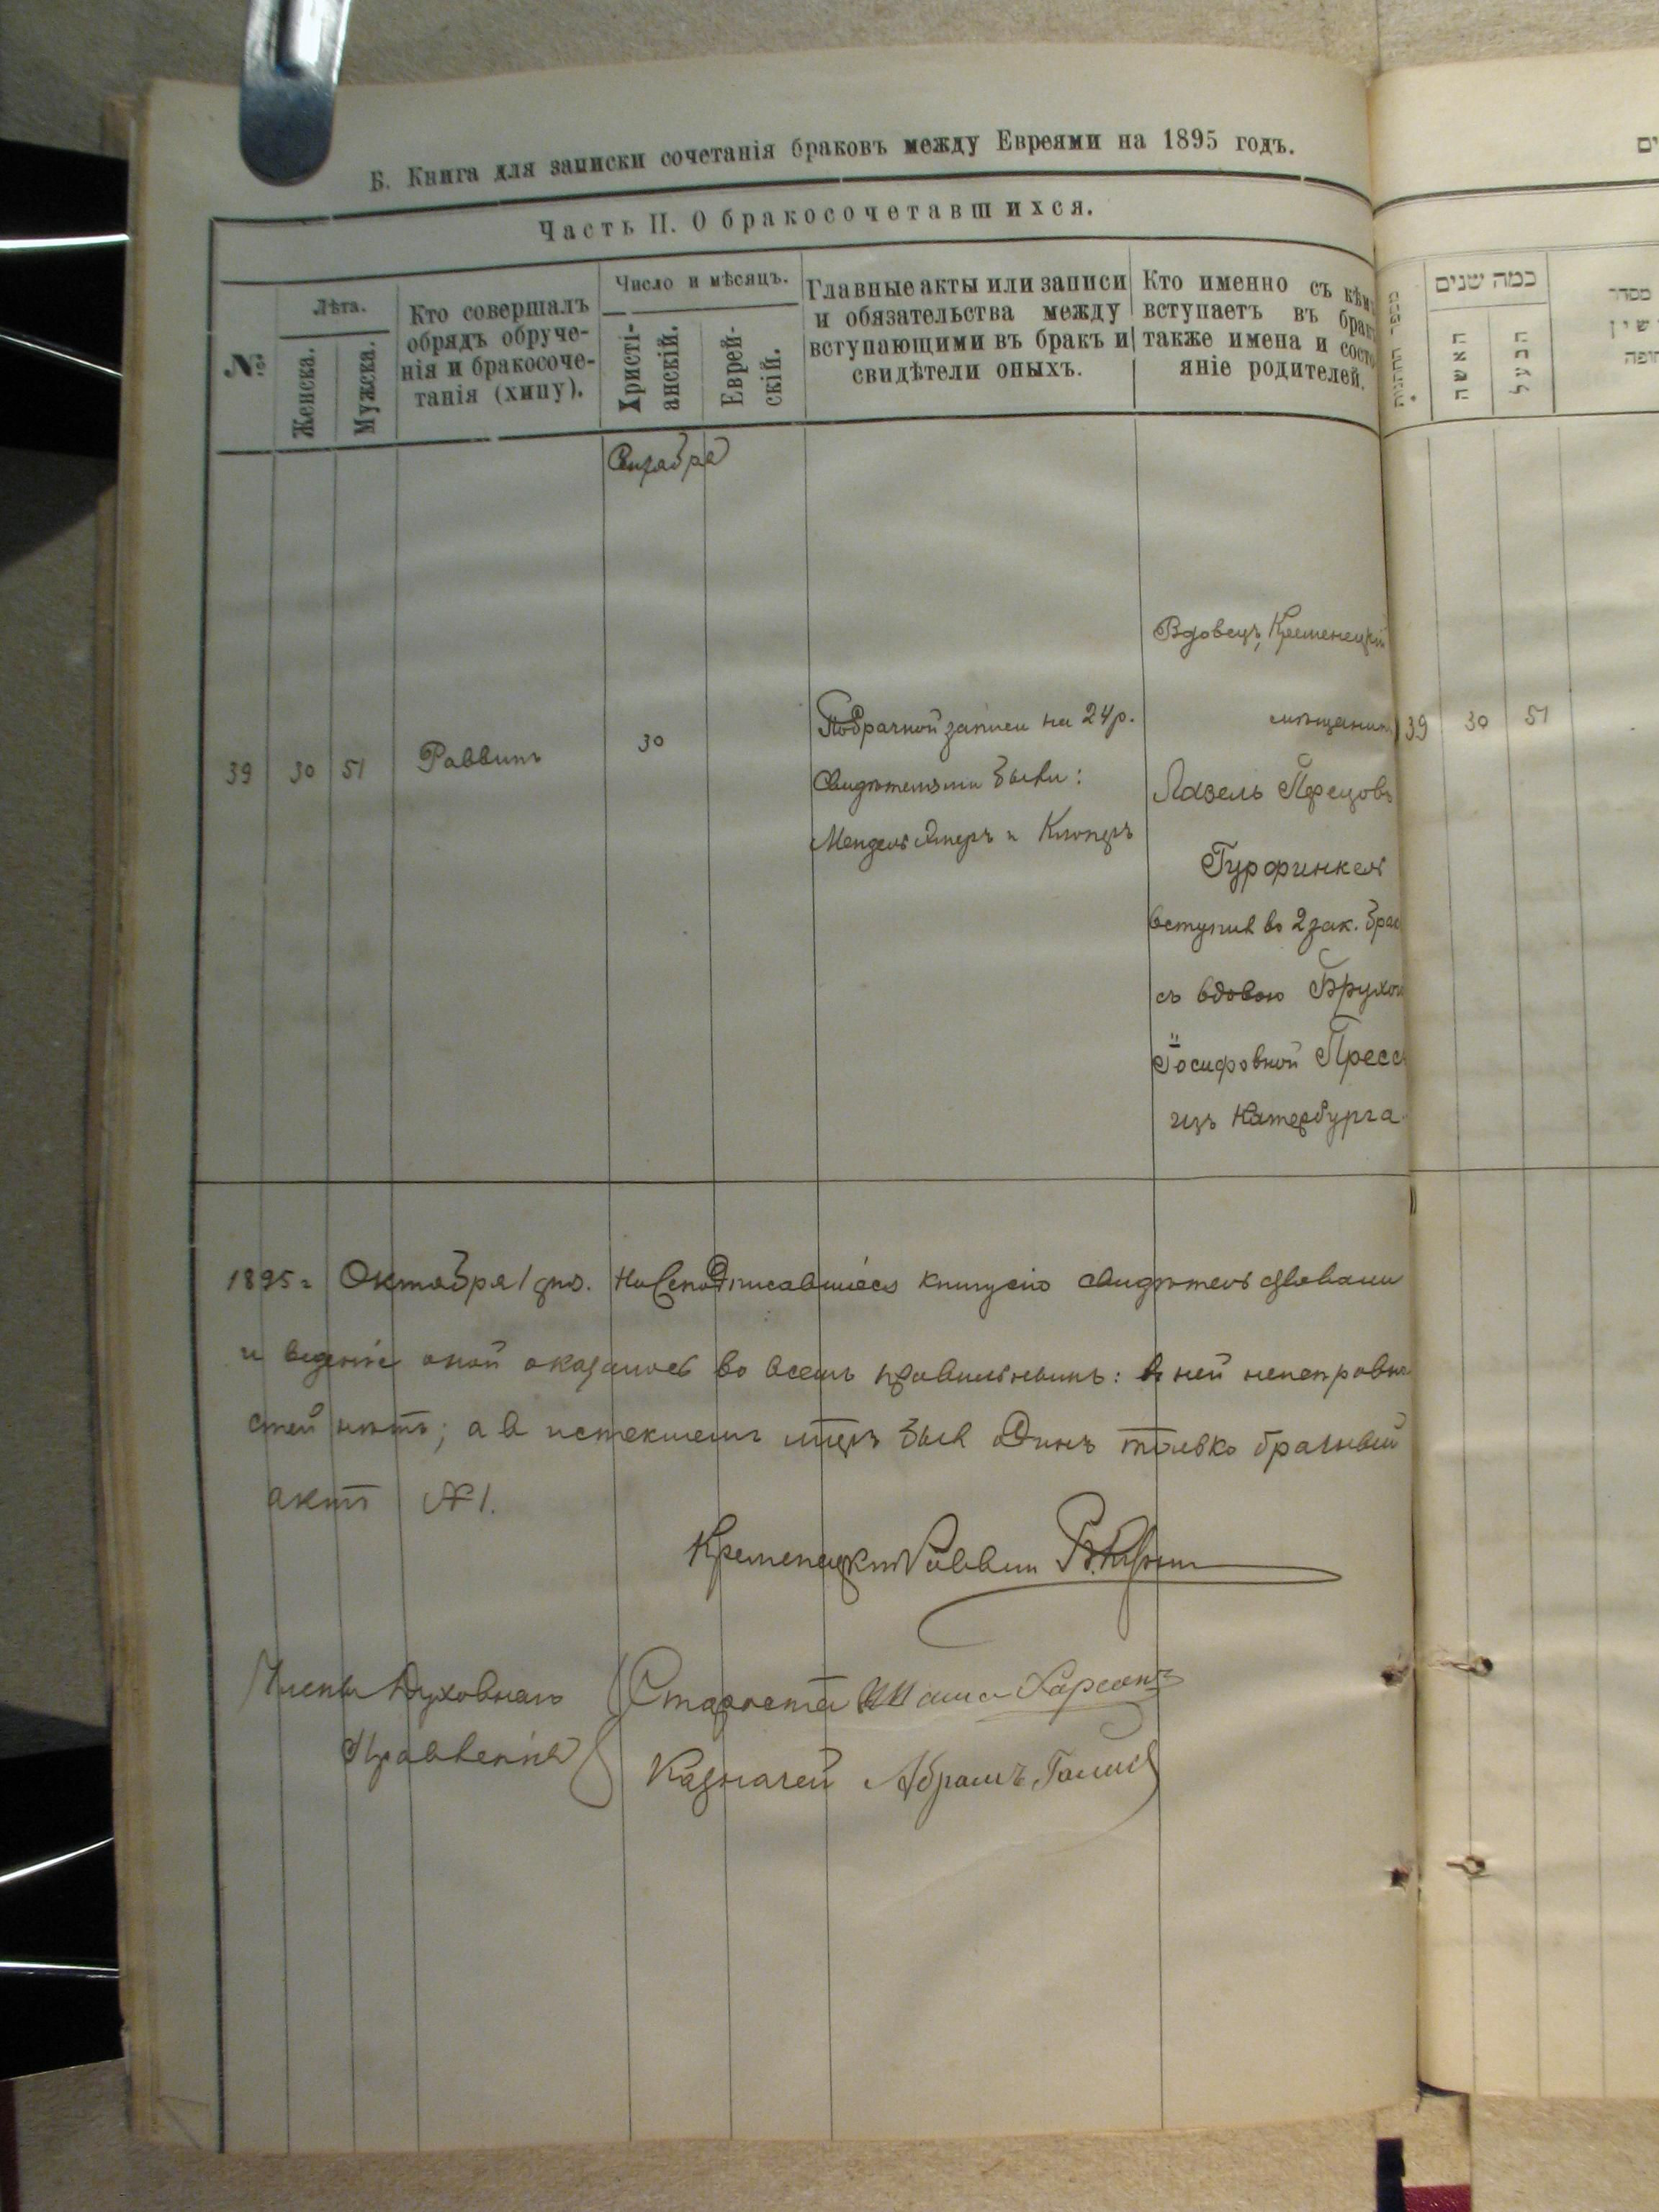 Б. Книга для записки сочетанія браковъ между Евреями на 1895 годъ.
Часть II. О бракосочетавшихся.
№
Лѣта.
Женска.
Мужска.
Кто совершалъ
обрядъ обруче-
нія и бракосоче-
танія (хипу).
Число и мѣсяцъ.
Христі-
анскій.
Еврей-
скій.
Главные акты или записи
и обязательства между
вступающими въ бракъ и
свидѣтели оныхъ.
Кто именно съ кѣмъ
вступаетъ въ бракъ
также имена и состо
яніе родителей.
Сентября
39
30
51
Раввинъ
30
По брачной записи на 24 р.
Свидѣтелями были:
Мендель и
Вдовецъ, Кременецкій
мѣщанинъ
Лазель Перецовъ
Гурфинкель
вступил во 2 зак. брак
съ вдовою Брухой
Іосифовной Пресс
изъ Катербурга.
1895 г Октября 1 дня. Нижеподписавшіеся книгу сію свидѣтельствовали
и веденіе оной оказалось во всемъ правильнымъ: в ней неисправно
стей нѣтъ; а в истекшемъ мцѣ был один только брачный
актъ № 1.
Кременецкій Раввин
Члены Духовнаго
Правленія
Староста
Казначей Абрамъ
כמה שנים
האשה
הבעל
מסדר
39
30
51